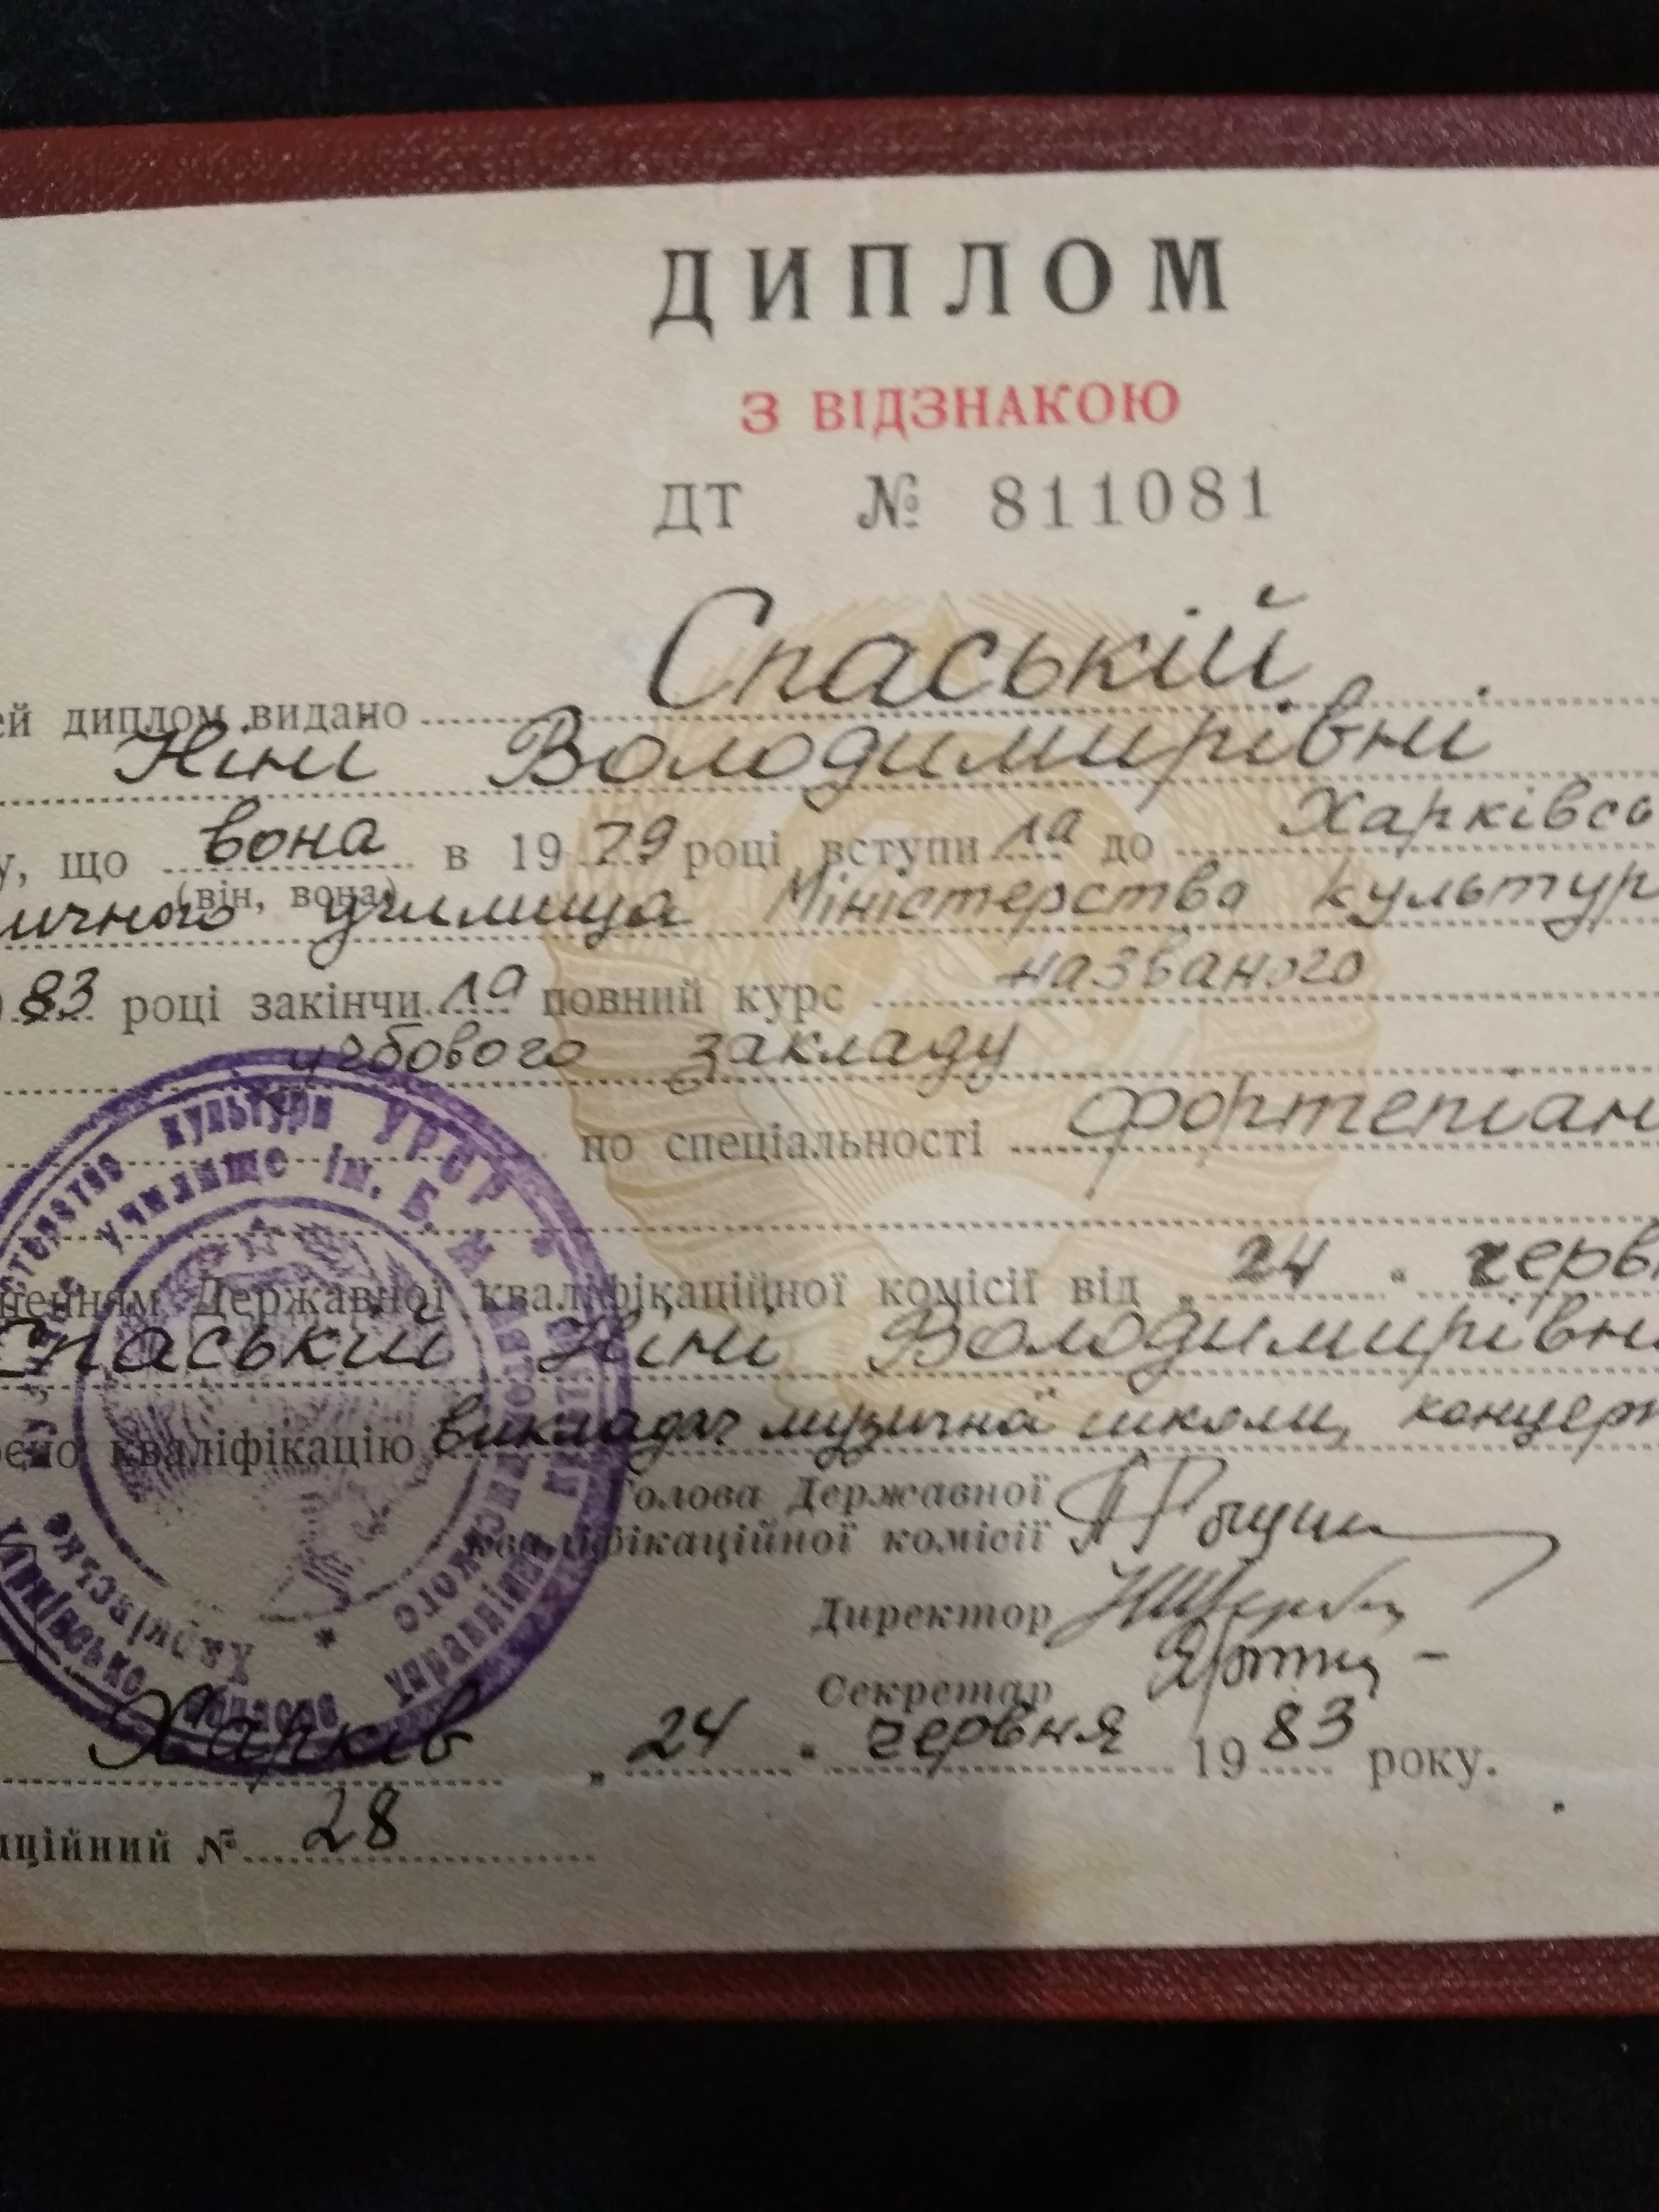 ДИПЛОМ
З ВІДЗНАКОЮ
ДТ № 811081
ей диплом видано Спаській
Ніні Володимирівни
у, що вона в 1979 році вступила до Харківсь
(він, вона)
ичного училища Міністерства культур
83 році закінчила повний курс названого
учбового закладу
по спеціальності фортепіан
ненням Державної кваліфікаційної комісії від „24" черв
Спаській Ніні Володимирівн
оєно кваліфікацію викладач музичної школи, концерт
Голова Державної
кваліфікаційної комісії
Директор
Секретар
Харків „24" червня 1983 року.
аційний № 28
культури УРСР *
училище ім. Б. М.
Харківське